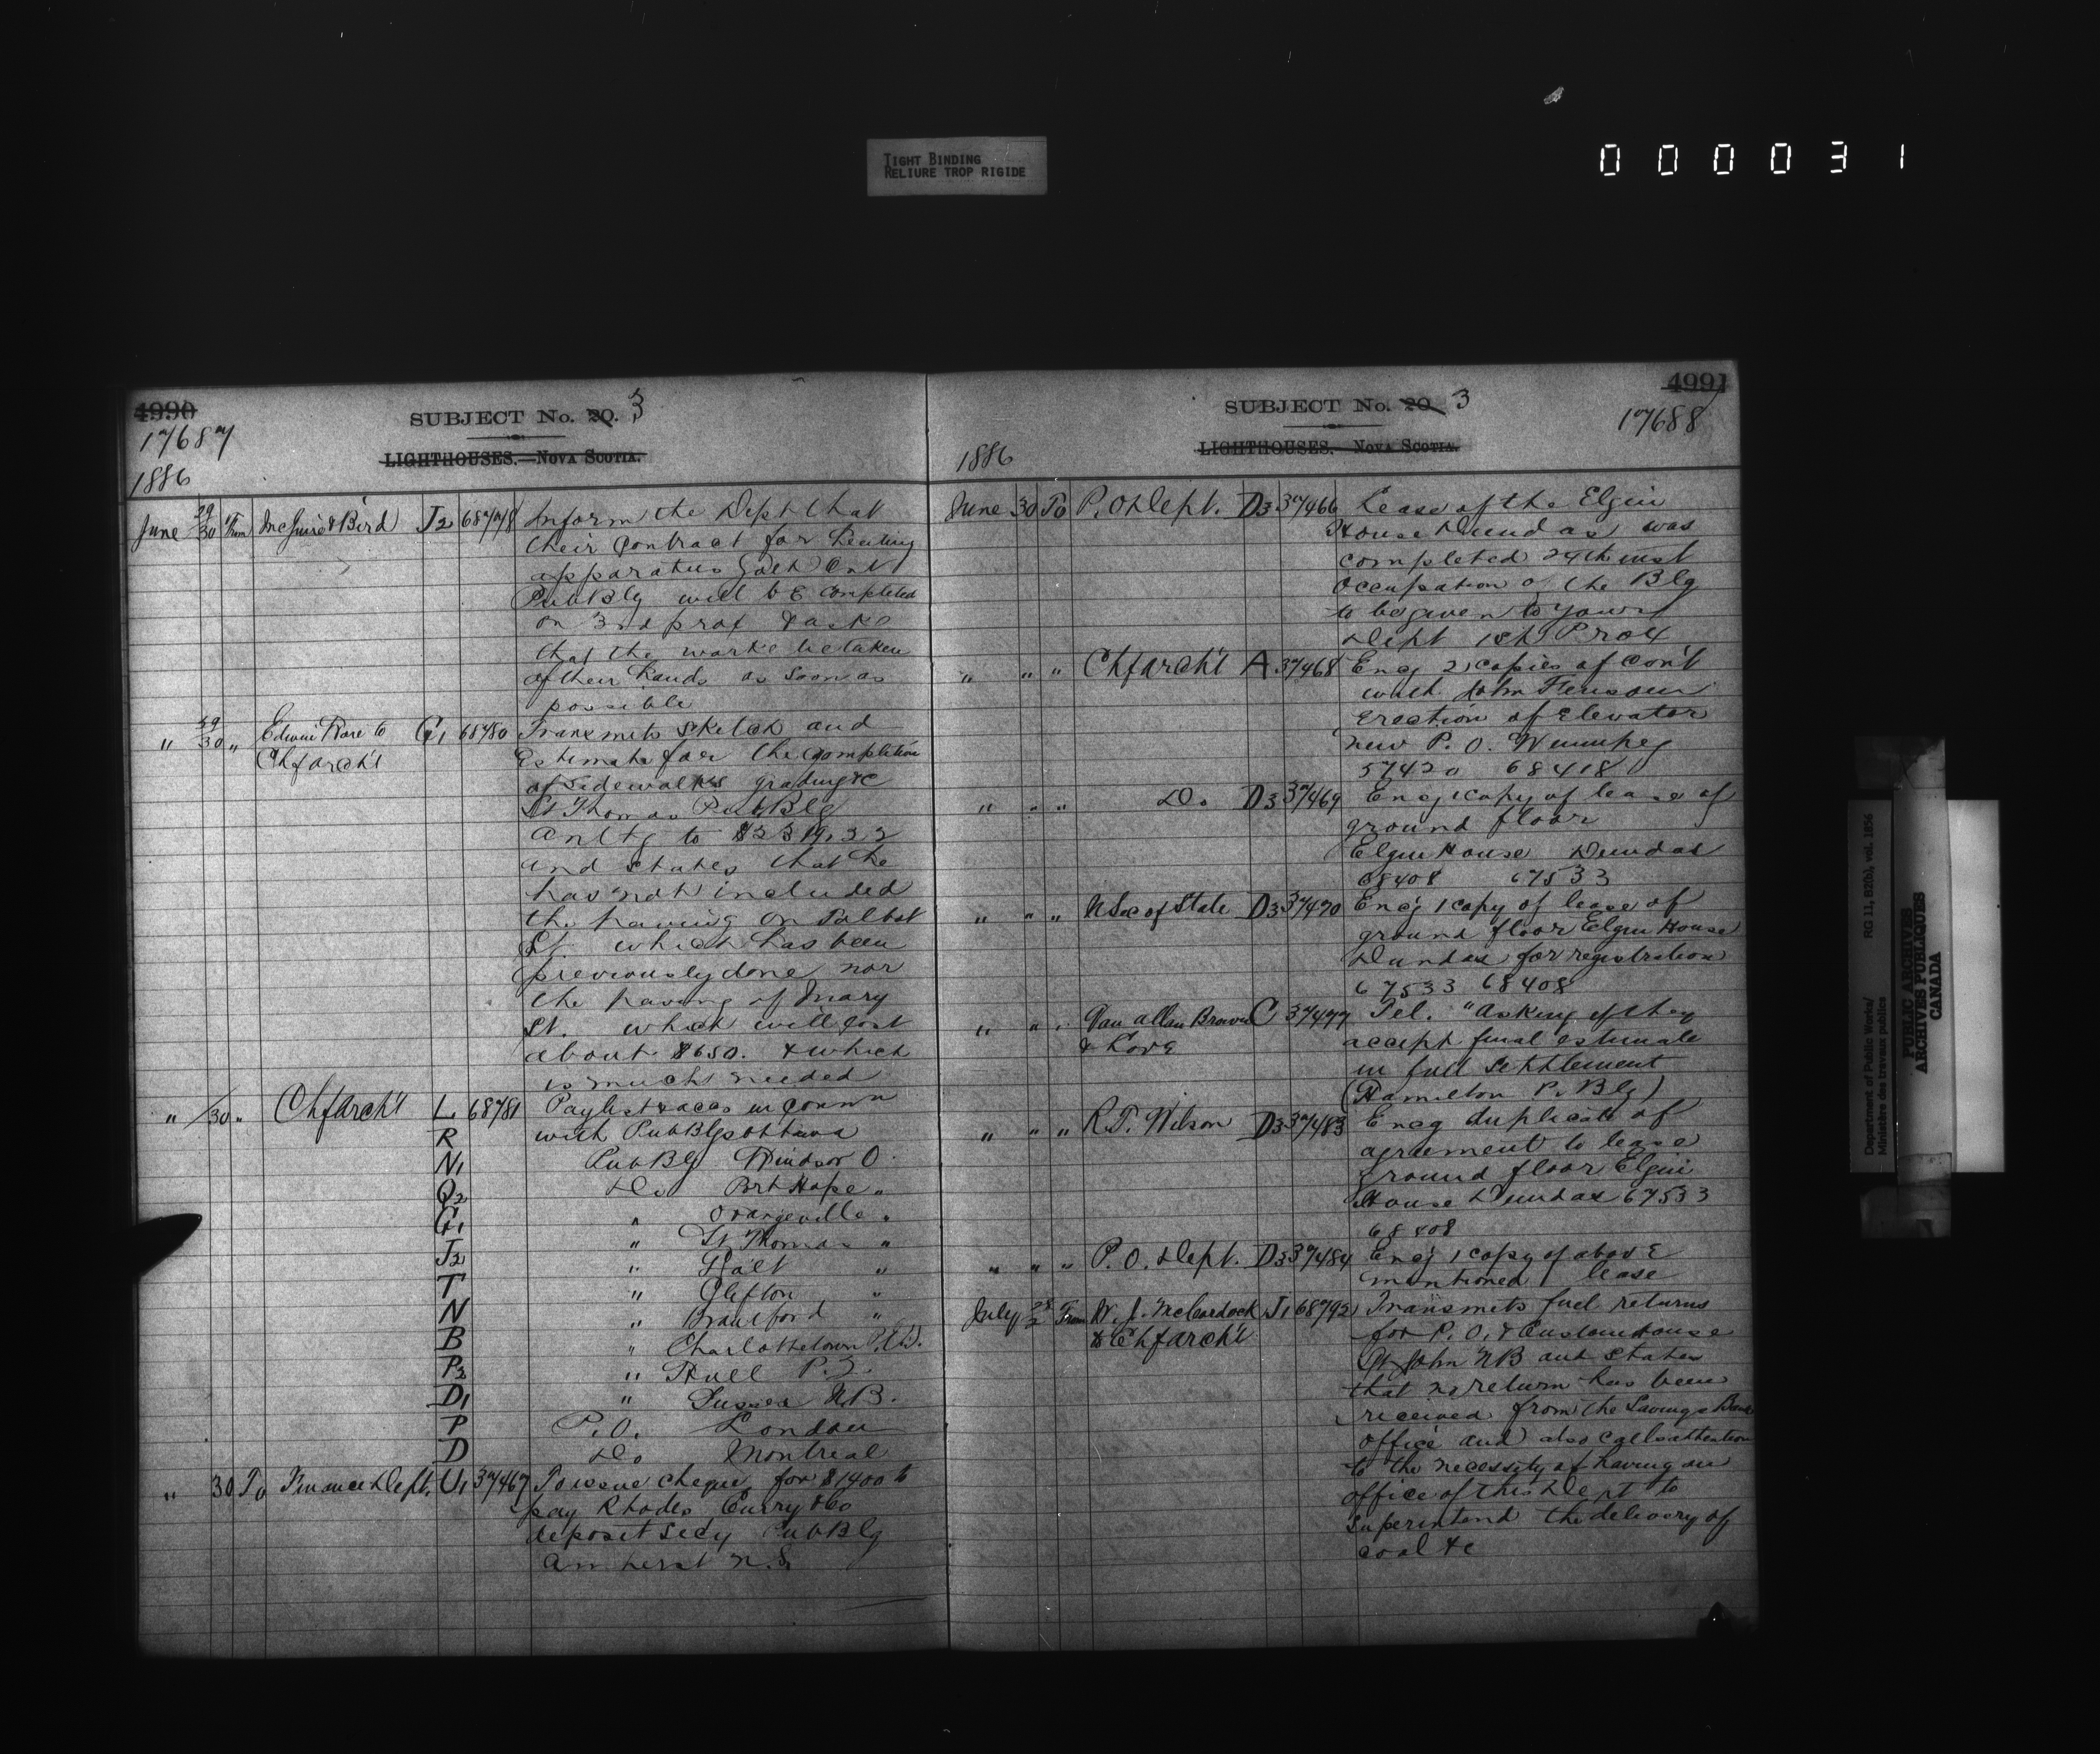 TIGHT BINDING
RELIURE TROP RIGIDE
000031
4990
17687
SUBJECT No. 20. 3
LIGHTHOUSES.—NOVA SCOTIA.
1886
June 29/30 From McGuire & Bird J2 68778 Inform the Dept that
their Contract for heating
apparatus Galt Ont
Pub Blg will be completed
on 3rd prox & ask
that the works be taken
of their hands as soon as
possible
" 29/30 " Edwin Ware to G1 68780 Transmits sketch and
Chf arch't Estimate for the completion
of sidewalks grading &c
St Thomas Pub Blg
amtg to $2319.32
and states that he
has not included
the paving on Talbot
St. which has been
previously done nor
the paving of Mary
St. which will cost
about $650. & which
is much needed
" /30 " Chf arch't L 68781 Paylist & accs in connn
R with Pub Blgs Ottawa
N1 Pub Blg Windsor O.
Q2 Do Port Hope "
G1 " Orangeville "
" St Thomas "
J2 " Galt "
T " Clifton "
N " Brantford "
B " Charlottetown P.E.I.
P3 " Hull P.Q.
D1 " Sussex N.B.
P P.O. London
D Do Montreal
" 30 To Finance Dept. U1 37467 To issue cheque for $1400 to
pay Rhodes Curry & Co
deposit Secy Pub Blg
Amherst N.S.
4991
17688
SUBJECT No. 20 3
LIGHTHOUSES. NOVA SCOTIA.
1886
June 30 To P.O Dept. D3 37466 Lease of the Elgin
House Dundas was
completed 24th inst
Occupation of the Blg
to be given to your
Dept 1st Prox
" " " Chf arch't A 37468 Encg 2 copies of Con't
with John
erection of Elevator
new P.O. Winnipeg
57420 68418
" " " Do. D3 37469 Encg 1 copy of lease of
ground floor
Elgin House Dundas
68408 67533
" " " U Sec of State D3 37470 Enc'g 1 copy of lease of
ground floor Elgin House
Dundas for registration
67533 68408
" " " Van Allan Brown C 37477 Tel. "Asking if they
& Love accept final estimate
in full settlement
(Hamilton P. Blg)
" " " R.T. Wilson D3 37483 Encg duplicate of
agreement to lease
ground floor Elgin
House Dundas 67533
68408
" " " P.O. Dept. D3 37484 Enc'g 1 copy of above
mentioned lease
July 2 From W. J. McCordock J1 68792 Transmits fuel returns
to Chf arch't for P.O. & Custom House
St John NB and states
that no return has been
received from the Savings Bank
office and also calls attention
to the necessity of having an
office of this Dept to
superintend the delivery of
coal &c
Department of Public Works/ RG 11, B2(b), vol. 1856
Ministère des travaux publics
PUBLIC ARCHIVES
ARCHIVES PUBLIQUES
CANADA